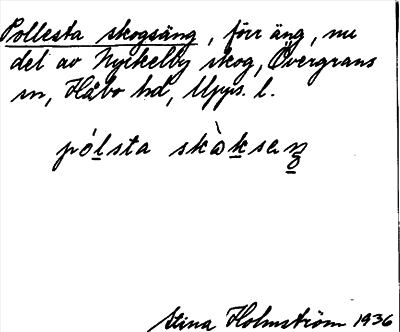 Pollesta skogsäng, förr äng, nu
del av Nyckelby skog, Övergrans
sn, Håbo hd, Upps. l.
pó̱lsta skàkseŋ
Stina Holmström 1936